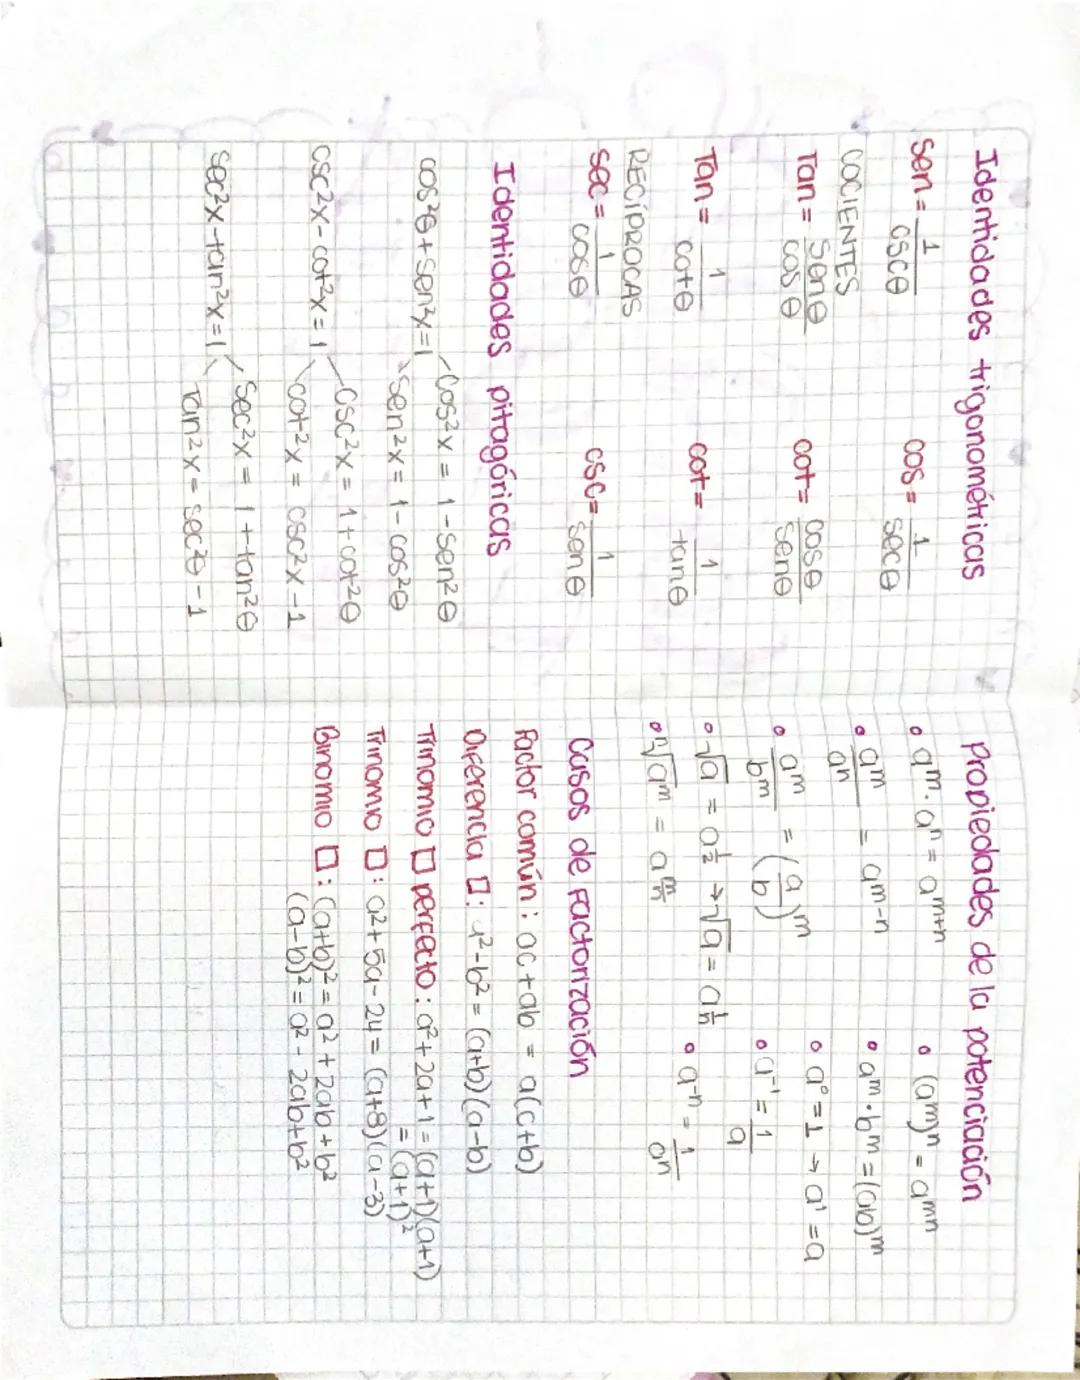 Identidades trigonométricas
Sen = 1/cscθ
cos = 1/secθ
COCIENTES
Tan = Senθ/cos θ
cot = cosθ/senθ
Tan = 1/cotθ
cot = 1/tanθ
RECÍPROCAS
sec = 1/cosθ
csc = 1/senθ
Identidades pitagóricas
cos²θ + sen²x = 1
Cos²x = 1 - sen²θ
Sen²x = 1 - cos²θ
csc²x - cot²x = 1
Csc²x = 1 + cot²θ
cot²x = csc²x - 1
sec²x - tan²x = 1
Sec²x = 1 + tan²θ
Tan²x = sec²θ - 1
Propiedades de la potenciación
• aᵐ · aⁿ = aᵐ⁺ⁿ
• (aᵐ)ⁿ = aᵐⁿ
• aᵐ/aⁿ = aᵐ⁻ⁿ
• aᵐ · bᵐ = (ab)ᵐ
• aᵐ/bᵐ = (a/b)ᵐ
• a⁰ = 1 → a¹ = a
• a⁻¹ = 1/a
• √a = a^½ → ⁿ√a = a^1/n
• a⁻ⁿ = 1/aⁿ
• ⁿ√aᵐ = a^m/n
Casos de Factorización
Factor común: ac + ab = a(c+b)
Diferencia □: a² - b² = (a+b)(a-b)
Trinomio □ perfecto: a² + 2a + 1 = (a+1)(a+1)
= (a+1)²
Trinomio □: a² + 5a - 24 = (a+8)(a-3)
Binomio □: (a+b)² = a² + 2ab + b²
(a-b)² = a² - 2ab + b²